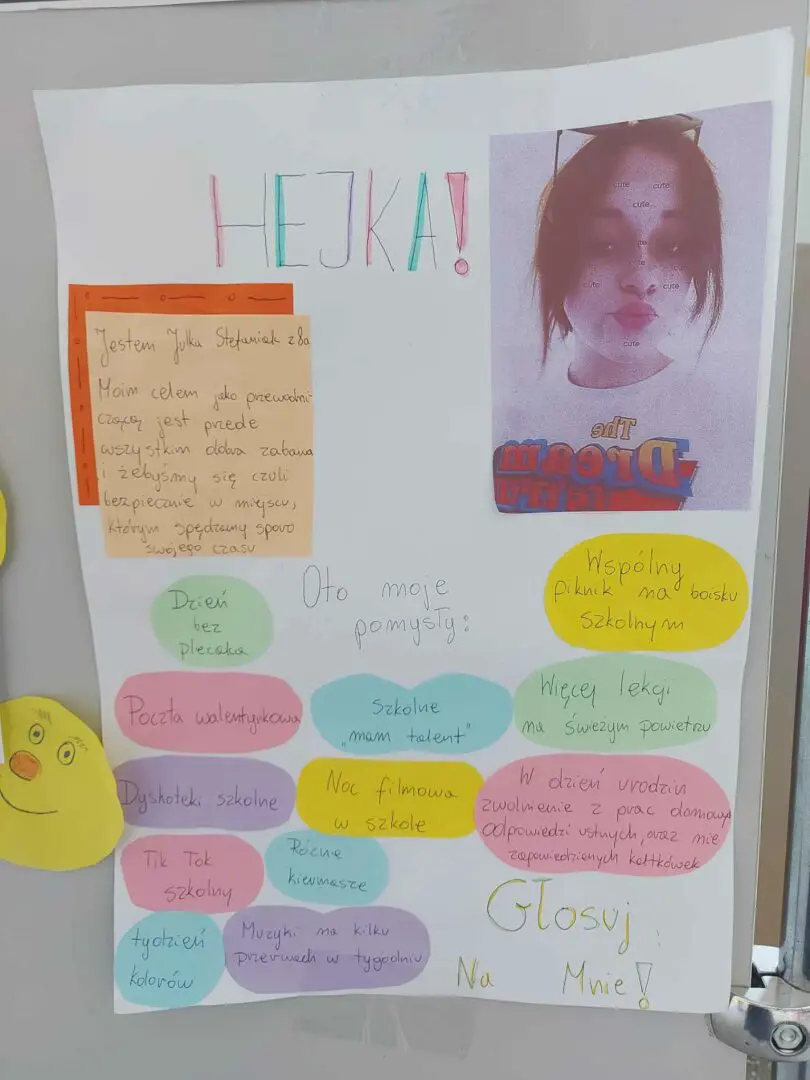 HEJKA!
cute
cute
cute
me
te
cute
cute
cute
The
Dream
Jestem Julka Stefaniak z 8a
Moim celem jako przewodni-
czącą jest przede
wszystkim dobra zabawa
i żebyśmy się czuli
bezpiecznie w miejscu,
którym spędzamy sporo
swojego czasu
Oto moje
pomysły:
Dzień
bez
plecaka
Wspólny
piknik na boisku
szkolnym
Poczta walentynkowa
Szkolne
„mam talent"
Więcej lekcji
na świeżym powietrzu
Dyskoteki szkolne
Noc filmowa
w szkole
W dzień urodzin
zwolnienie z prac domowych
odpowiedzi ustnych, oraz nie
zapowiedzianych kartkówek
Tik Tok
szkolny
Różne
kiermasze
tydzień
kolorów
Muzyki na kilku
przerwach w tygodniu
Głosuj
Na Mnie!